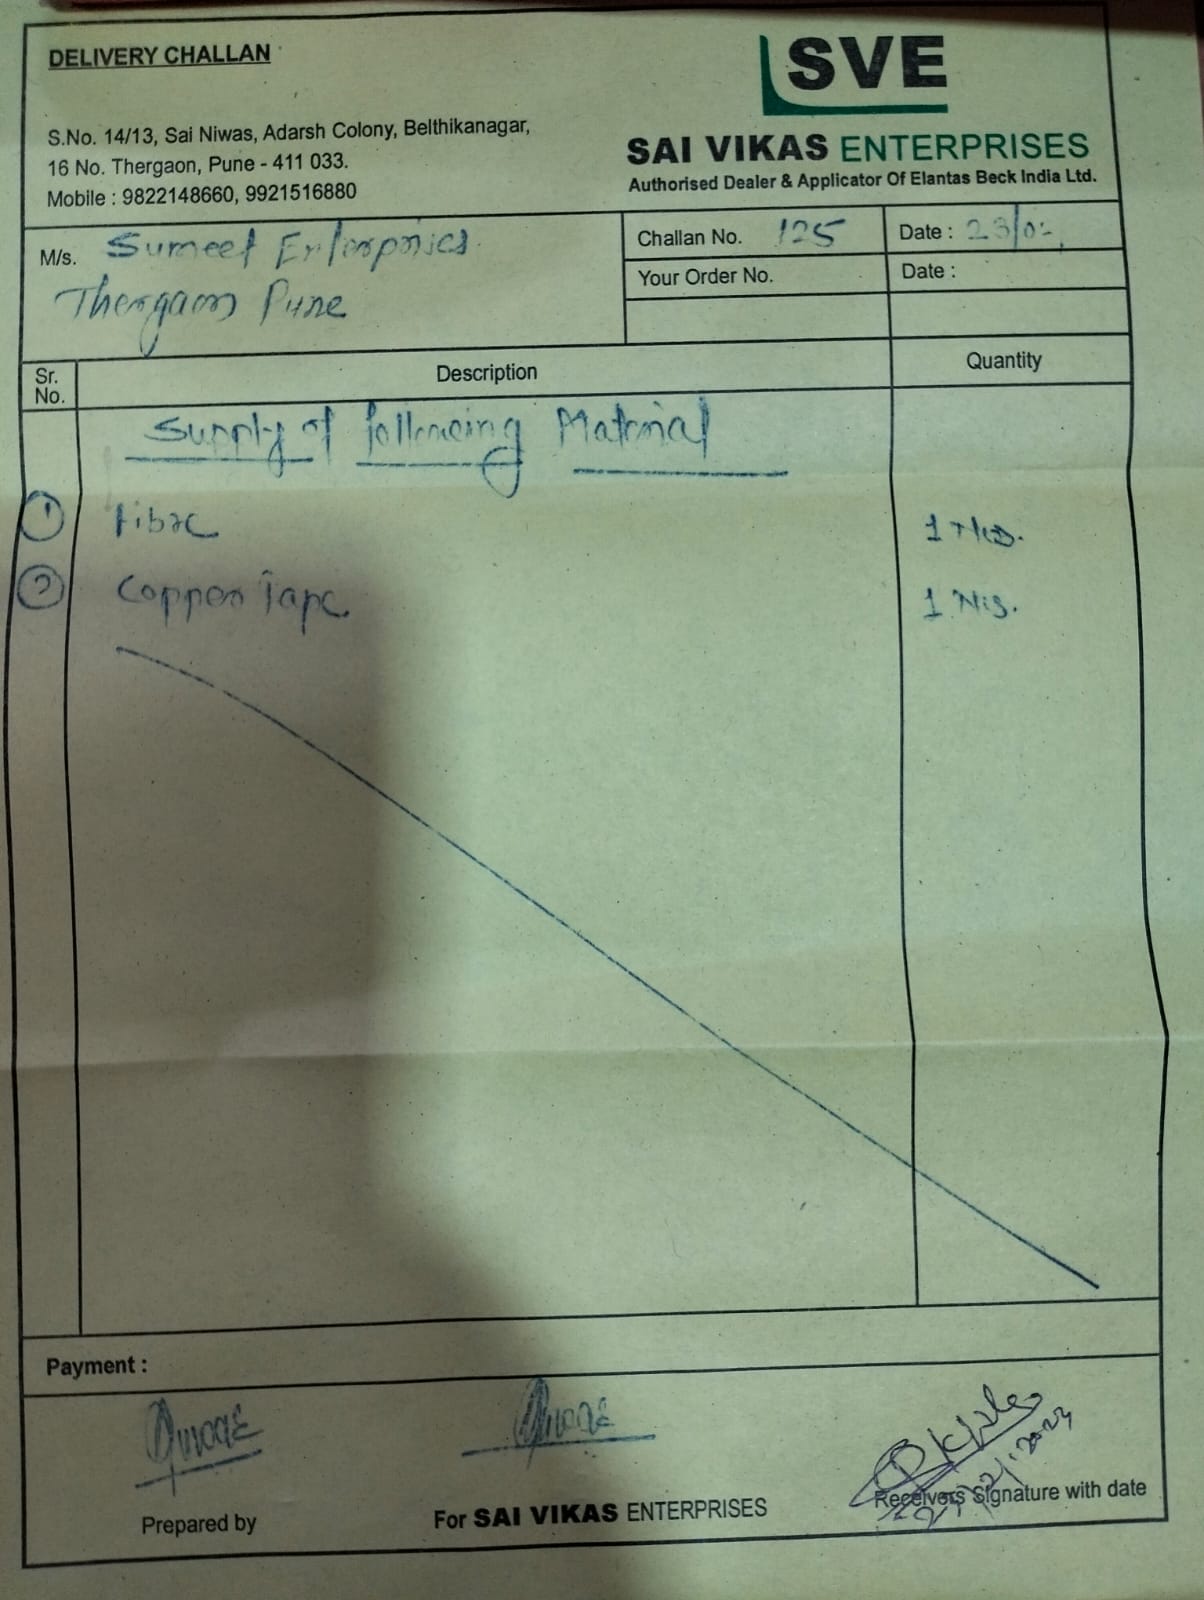 DELIVERY CHALLAN
SVE
S.No. 14/13, Sai Niwas, Adarsh Colony, Belthikanagar,
16 No. Thergaon, Pune - 411 033.
Mobile : 9822148660, 9921516880
SAI VIKAS ENTERPRISES
Authorised Dealer & Applicator Of Elantas Beck India Ltd.
M/s. Sumeet Enterprises
Thergaon Pune
Challan No. 125
Date : 23/02
Your Order No.
Date :
Sr. No.
Description
Quantity
Supply of following Material
1 Fibre 1 Nos.
2 Copper Tape 1 Nos.
Payment :
Prepared by
For SAI VIKAS ENTERPRISES
Receivers Signature with date